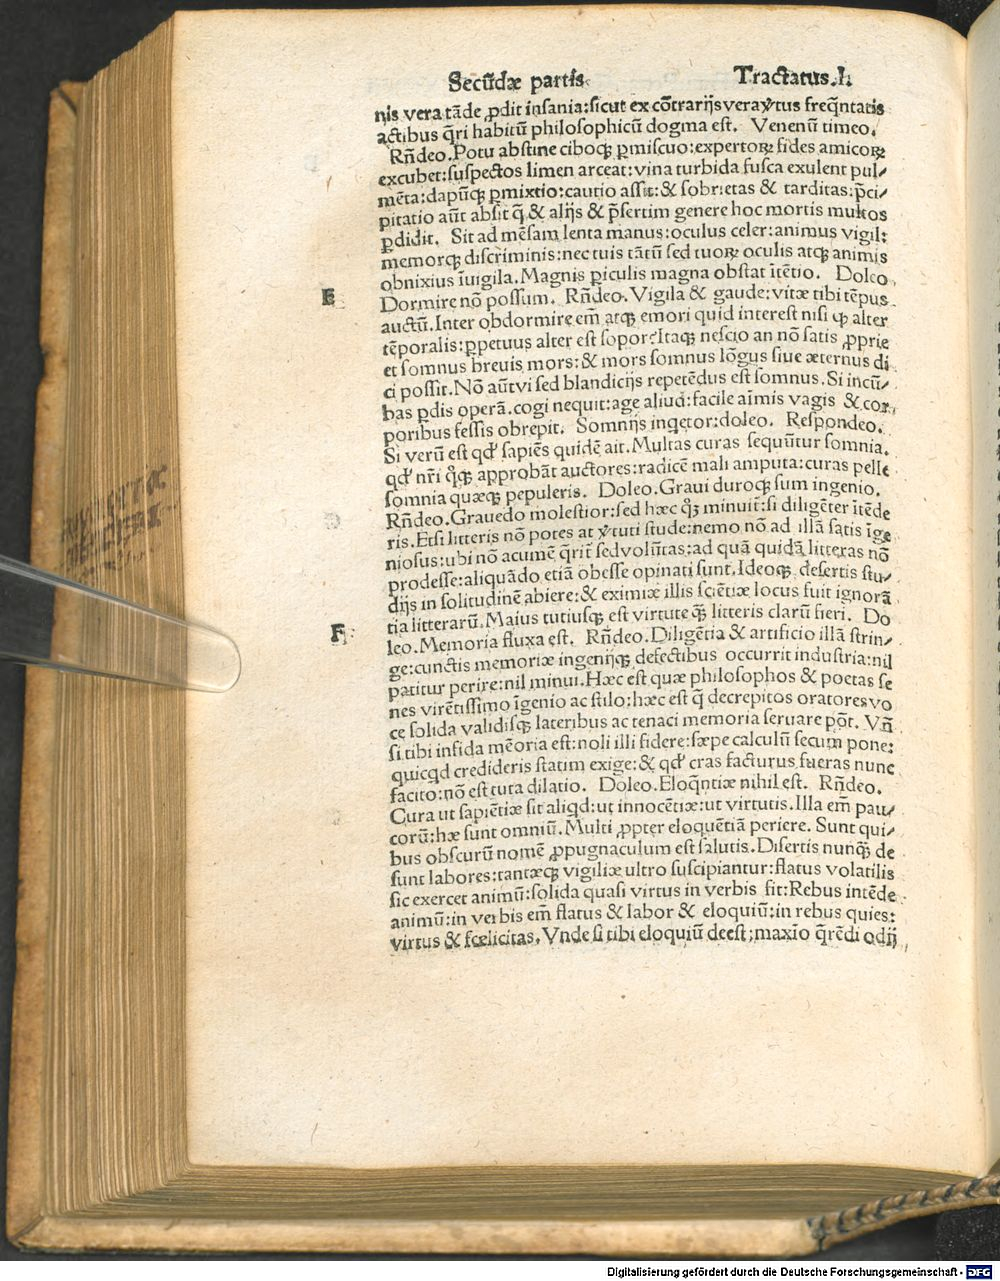 Secūdæ partis Tractatus.I.
nis vera tāde ꝓdit insania:sicut ex cōtrarijs vera ꝟtus freq̄ntatis
actibus q̄ri habitū philosophicū dogma est. Venenū timeo.
Rn̄deo.Potu abstine ciboqꝫ ꝑmiscuo:expertoꝝ fides amicoꝝ
excubet:suspectos limen arceat:vina turbida fusca exulent pul⸗
mēta:dapūqꝫ ꝑmixtio:cautio assit:& sobrietas & tarditas:p̄ci⸗
pitatio aūt absit q̄ & alijs & p̄sertim genere hoc mortis multos
ꝑdidit. Sit ad mēsam lenta manus:oculus celer:animus vigil:
memorqꝫ discriminis:nec tuis tātū sed tuoꝝ oculis atqꝫ animis
obnixius īuigila.Magnis ꝑiculis magna obstat ītētio. Doleo
E
Dormire nō possum. Rn̄deo.Vigila & gaude:vitæ tibi tēpus
auctū.Inter obdormire em̄ atqꝫ emori quid interest nisi ꝙ alter
tēporalis:ꝑpetuus alter est sopor?Itaqꝫ nescio an nō satis ꝓprie
et somnus breuis mors:& mors somnus lōgus siue æternus di
ci possit.Nō aūt vi sed blandicijs repetēdus est somnus.Si incū⸗
bas ꝑdis operā.cogi nequit:age aliud:facile aīmis vagis & cor⸗
poribus fessis obrepit. Somnijs inq̄etor:doleo. Respondeo.
Si verū est qd' sapiēs quidē ait.Multas curas sequūtur somnia.
qd' nr̄i q̊qꝫ approbāt auctores:radicē mali amputa:curas pelle
somnia quæqꝫ pepuleris. Doleo.Graui duroqꝫ sum ingenio.
Rn̄deo.Grauedo molestior:sed hæc qꝫ minuit:si diligēter itēde
ris.Etsi litteris nō potes at ꝟtuti stude:nemo nō ad illā satis īge
niosus:ubi nō acumē q̄rit̄ sed volūtas:ad quā quidā litteras nō
prodesse:aliquādo etiā obesse opinati sunt.Ideoqꝫ desertis stu⸗
dijs in solitudinē abiere:& eximiæ illis sciētiæ locus fuit ignorā
tia litterarū.Maius tutiusqꝫ est virtute qꝫ litteris clarū fieri. Do
F
leo.Memoria fluxa est. Rn̄deo.Diligētia & artificio illā strin⸗
ge:cunctis memoriæ ingenijqꝫ defectibus occurrit industria:nil
patitur perire:nil minui.Hæc est quæ philosophos & poetas se
nes virētissimo īgenio ac stilo:hæc est q̄ decrepitos oratores vo
ce solida validisqꝫ lateribus ac tenaci memoria seruare pōt. Vn̄
si tibi infida mēoria est:noli illi fidere:sæpe calculū secum pone:
quicqd credideris statim exige:& qd' cras facturus fueras nunc
facito:nō est tuta dilatio. Doleo.Eloq̄ntiæ nihil est. Rn̄deo.
Cura ut sapiētiæ sit aliqd:ut innocētiæ:ut virtutis.Illa em̄ pau⸗
corū:hæ sunt omniū.Multi ꝓpter eloquētiā periere. Sunt qui⸗
bus obscurū nomē ꝓpugnaculum est salutis.Disertis nunqꝫ de
sunt labores:tantæqꝫ vigiliæ ultro suscipiantur:flatus volatilis
sic exercet animū:solida quasi virtus in verbis sit:Rebus intēde
animū:in verbis em̄ flatus & labor & eloquiū:in rebus quies:
virtus & fœlicitas.Vnde si tibi eloquiū deest;maxīo q̄rēdi odij
Digitalisierung gefördert durch die Deutsche Forschungsgemeinschaft - DFG